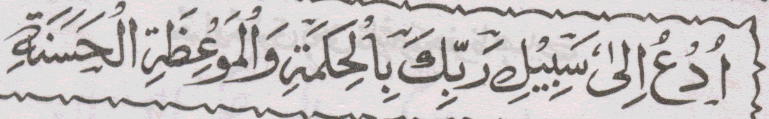 اُدْعُ اِلٰى سَبِيْلِ رَبِّكَ بِالْحِكْمَةِ وَالْمَوْعِظَةِ الْحَسَنَةِ